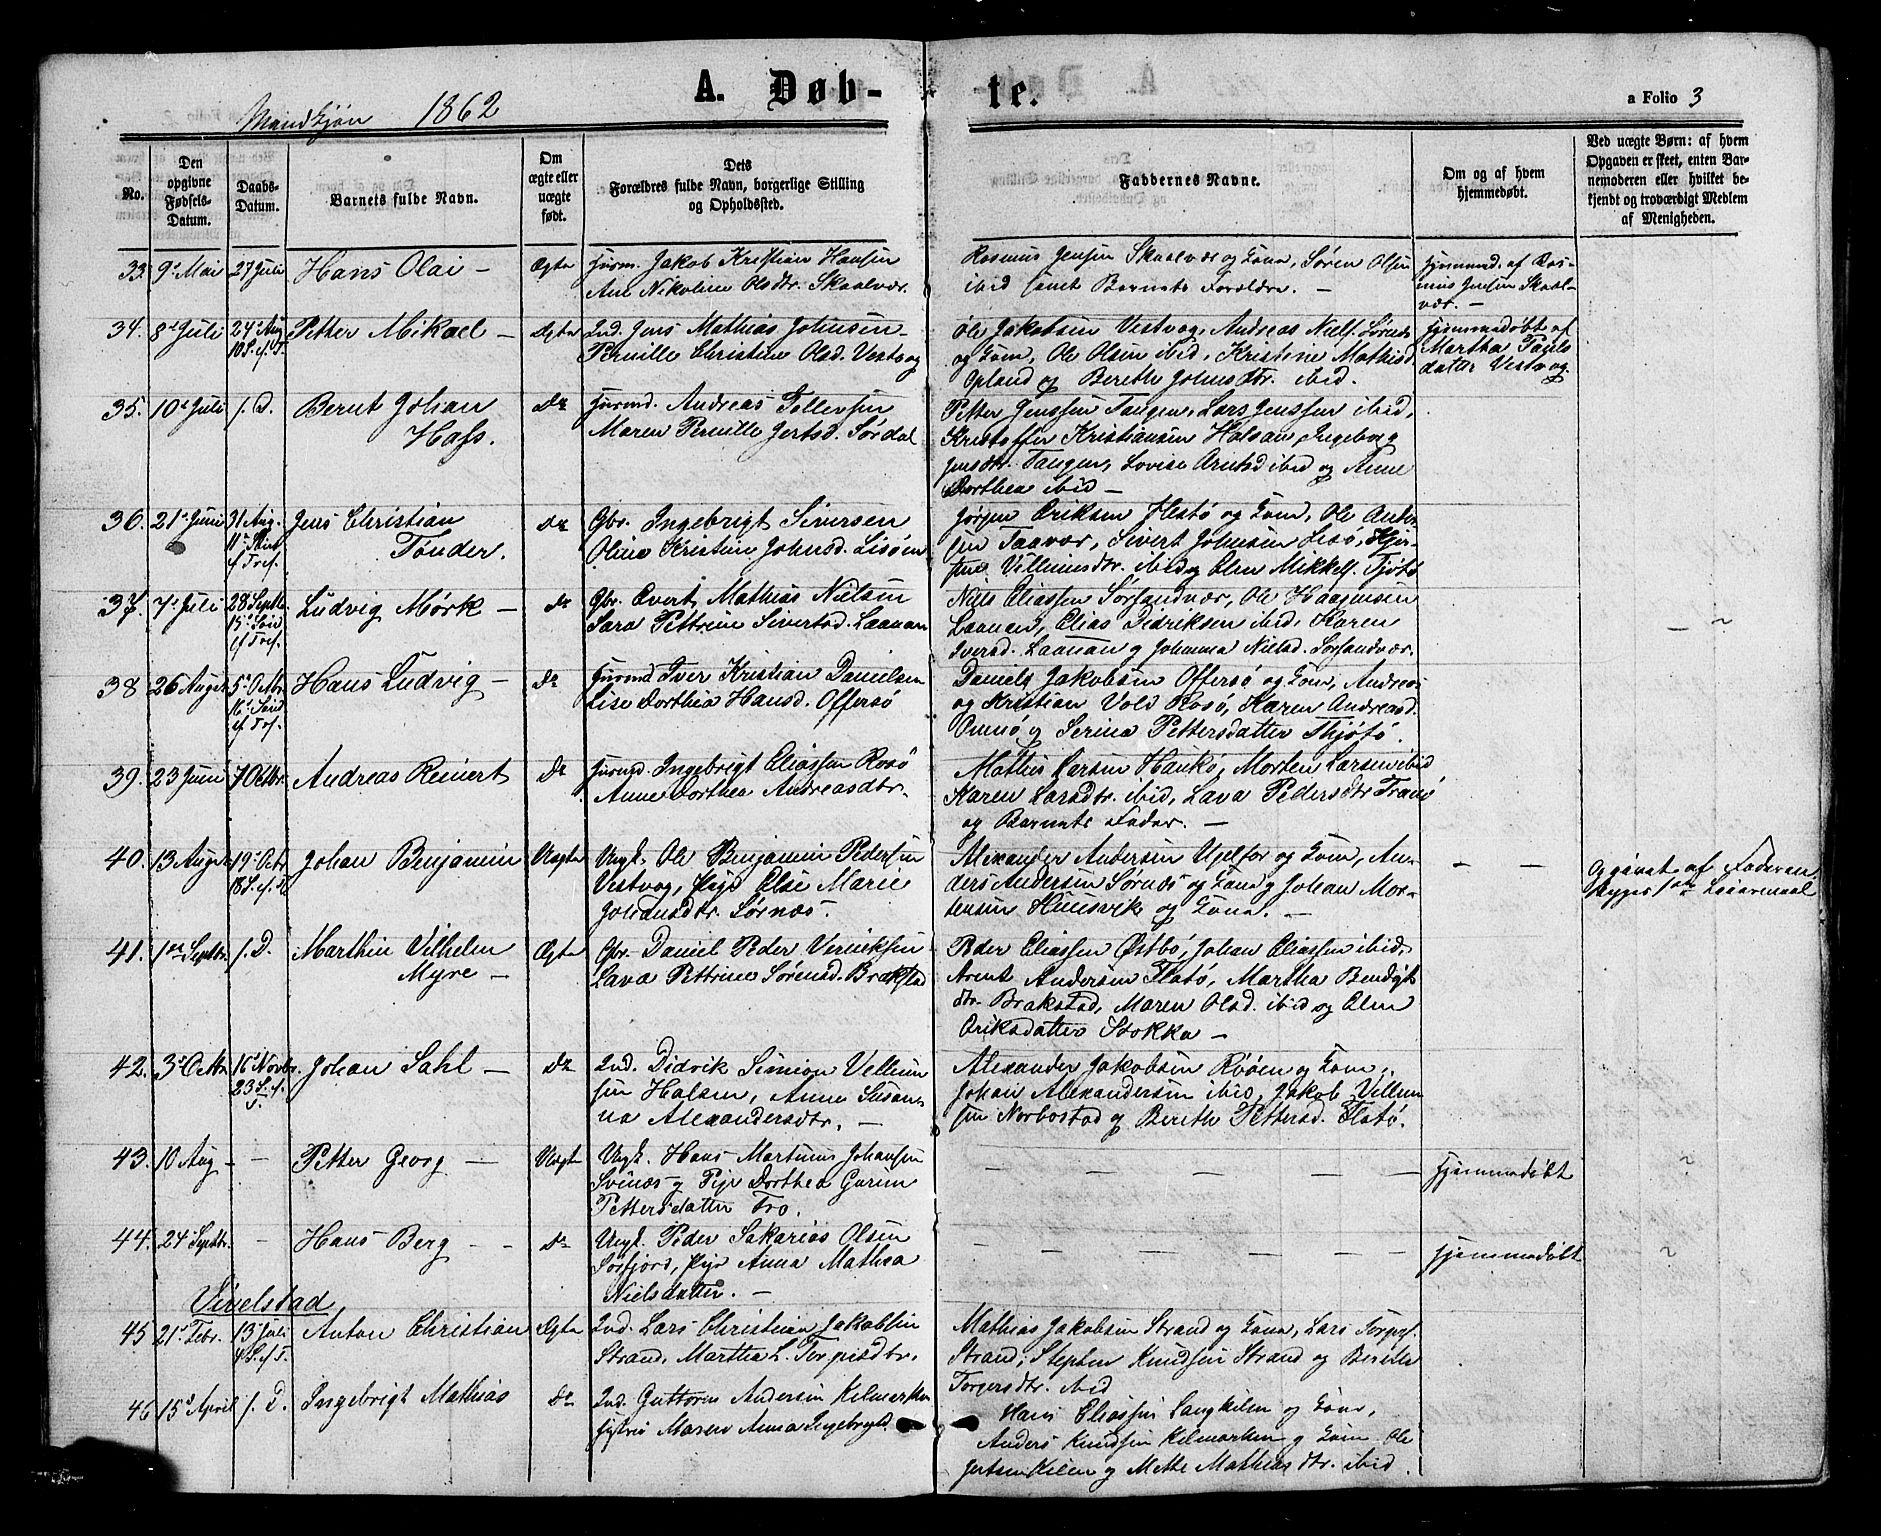 A. Døb-
te.
a Folio 3
Mandkjøn 1862
No.
Den opgivne Fødsels-Datum.
Daabs-Datum.
Barnets fulde Navn.
Om ægte eller uægte født.
Dets
Forældres fulde Navn, borgerlige Stilling
og Opholdssted.
Faddernes Navne.
Om og af hvem
hjemmedøbt.
Ved uægte Børn: af hvem
Opgaven er skeet, enten Bar-
nemoderen eller hvilket be-
kjendt og troværdigt Medlem
af Menigheden.
33. 9de Mai 27 Juli Hans Olai – Ægte
Jakob Kristian Hansen
Ane Nikoline Olsdtr. Skaalvær.
Rasmus Jensen Skaalvær og Kona, Søren Olsen
ibid samt Barnets Forældre. –
Hjemmed. af Ras-
mus Jensen Skaal-
vær. –
34. 8de Juli 24de Aug. 10 S. e. T. Petter Mikael – Ægte
Ind. Jens Mathias Johnsen
Pernille Christine Olsd. Vestvog
Ole Jakobsen Vestvog, Andreas Niels. Sørnæs
og Kona, Ole Olsen ibid, Kristine Mathisd
Opland og Bereth Johnsdtr. ibid.
Hjemmedøbt af
Martha Pauls
datter Vestvog.
35. 10de Juli s. D. Bernt Johan
Hass.
Do
Andreas Tollevsen
Maren Pernille Jertsd. Sørdal
Petter Jenssen Tangen, Lars Jenssen ibid,
Kristoffer Kristiansen Halsan, Ingeborg
Jensdtr. Tangen, Lovise Arntsd ibid og Anne
Dorthea ibid –
36. 21de Juni 31 Aug. 11te S. e. Tref. Jens Christian
Tønder.
Do
Gbr. Ingebrigt Sivertsen
Oline Kristine Johnsd. Lisøen
Jørgen Eriksen Flatø og Kona, Ole Ander-
sen Taavær, Sivert Johnsen Lisø,
Villumsdtr. ibid og Elen Mikkels. Tjøtø
37. 7de Juli 28 Septbr. 15de Sønd. e. Tref. Ludvig Mørk – Do
Gbr. Evert Mathias Nielsen
Sara Pettrine Sivertsd. Laanan
Niels Eliassen Sørsandvær, Ole Haagensen
Laanan, Elias Didriksen ibid, Karen
Iversd. Laanan og Johanna Nielsd. Sørsandvær.
38 26 August 5te Octbr. 16de Sønd. e. Tref. Hans Ludvig – Do
Iver Kristian Danielsen
Lise Dorthea Hansd. Offersø
Daniels Jakobsen Offersø og Kona, Andreas
og Kristian Vold Rosø, Karen Andreasd.
og Serina Pettersdatter Thjøtø.
39. 23 Juni 7 Octbr. Andreas Reinert Do
Ingebrigt Eliassen Rosø
Anne Dorthea Andreasdtr.
Mathis Larsen Haukø, Morten Larsen ibid
Karen Larsdtr. ibid, Lava Pedersdtr Tranø
og Barnets Fader. –
40. 13 August 19de Octbr 18 S. e. T. Johan Benjamin Uægte
Ungk. Ole Benjamin Pedersen
Vestvog, Pige Else Marie
Johansdtr. Sørnæs.
Alexander Andersen og Kona, An-
ders Andersen Sørnæs og Kona og Johan Mor-
tensen Hunsvik og Kona. –
– –
Opgivet af Faderen
Begges 1ste Leiermaal
41. 1ste Septbr. s. D. Marthin Vilhelm
Myre –
Ægte
Gbr. Daniel Peder
Lava Pettrine Sørensd. Brakstad
Peder Eliassen Østbø, Johan Eliassen ibid,
Arent Andersen Flatø, Martha Bendigt
dtr. Brakstad, Maren Olsd. ibid og Elen
Eriksdatter Stokka –
42. 3de Octbr 16de Novbr. 23 S. e. T. Johan Sahl – Do
Ind. Didrik Simion Vellum
sen Halsen, Anne Susan-
na Alexandersdtr. –
Alexander Jakobsen Røøen og Kona,
Johan Alexandersen ibid, Jakob Villum
sen Norbostad og Bereth Pettersd. Flatø.
43. 10 Aug – – Petter Georg – Uægte
Ungk. Hans Martinus Johansen
Svinæs og Pige Dorthea
Pettersdatter Tro.
– – – – – –
Hjemmedøbt
44. 24 Septbr. – Hans Berg – – Do
Ungk. Peder Sakarias Olsen
Sørfjord, Pige Anna Mathea
Nielsdatter. –
– – – – – –
Hjemmedøbt
Vivelstad
45 21de Febr. 13de Juli 4 S. e. T. Anton Christian Ægte
Ind. Lars Christian Jakobsen
Strand, Martha L. Torpisdtr.
Mathias Jakobsen Strand og Kona, Lars
Strand, Stephen Knudsen Strand og Berethe
Torgersdtr. ibid
46 15de April s. D. Ingebrigt Mathias Do
Ind. Guttorm Andersen Kilmarken
Maren Anna Ingebrigtsd.
Hans Eliassen Langkilen og Kona,
Anders Knudsen Kilmarken og Kona Ole
Jertsen Kilen og Mette Mathiasdtr. ibid.